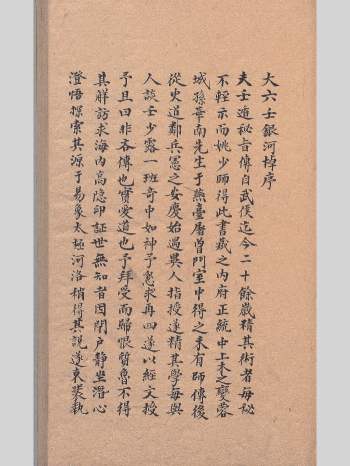 大六壬銀河棹序
夫壬遁秘旨傳自武侯迄今二十餘歲精其術者每秘
不輕示而姚少師得此書藏之内府正統中土木之變蓉
城孫華南先生于燕臺屠曾門室中得之未有師傳後
從史道鄰兵憲之安慶始遇異人指授遂精其學每與
人談壬少露一班奇中如神予懇求再四遂以經文授
予且曰非吝傳也實愛道也予拜受而歸恨質魯不得
其觧訪求海内高隐印証世無知者因閉户静坐潛心
澄悟探索其源于易象太極河洛稍得其説遂束裝執